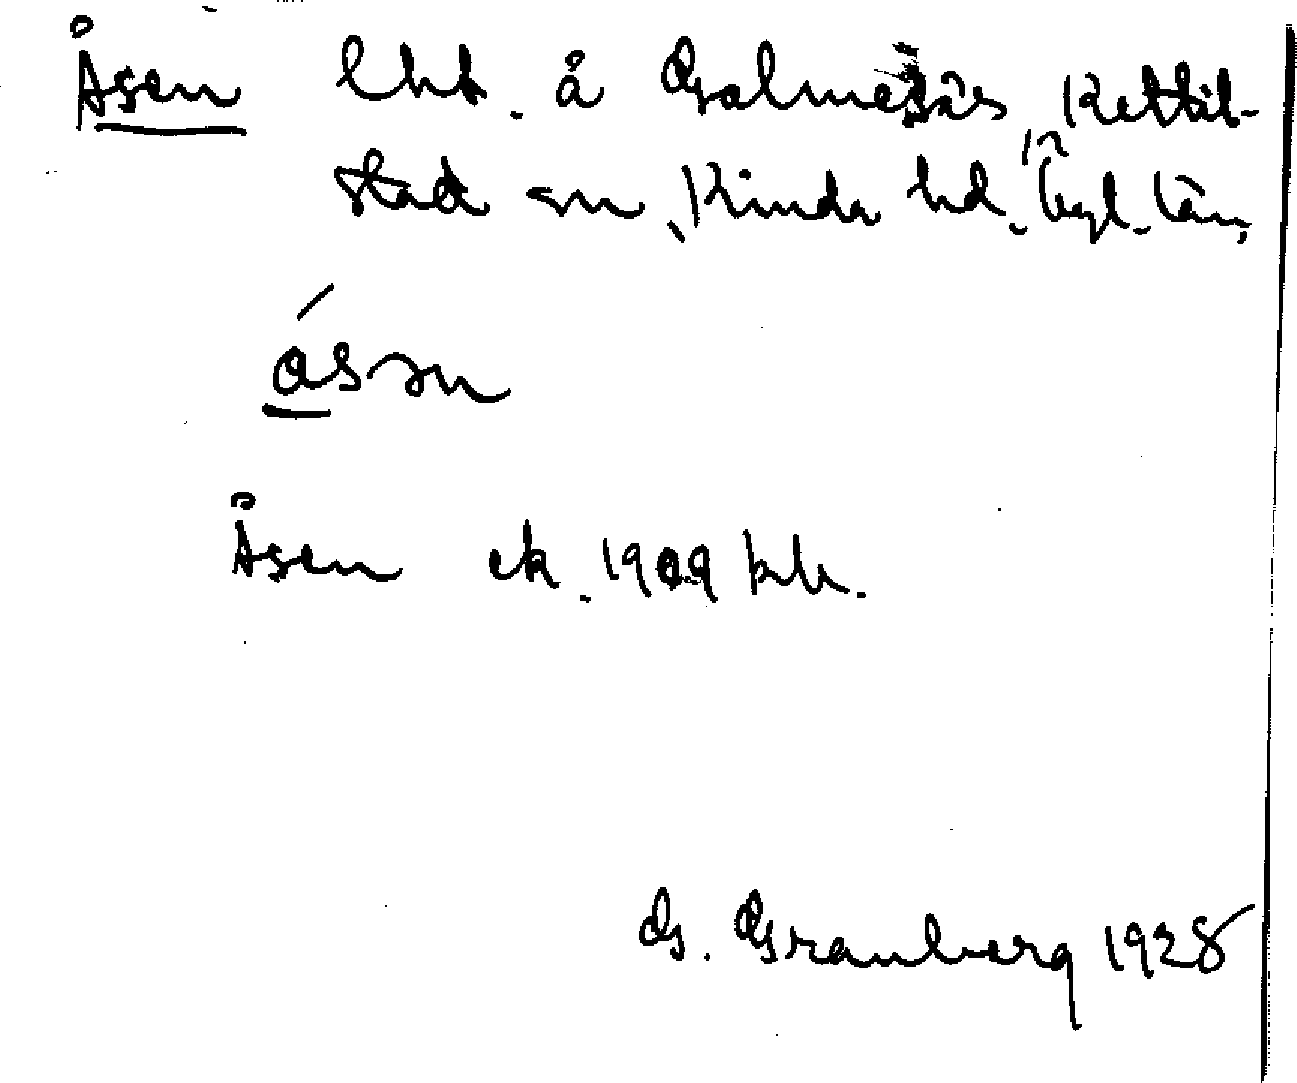 Åsen lht. å Galmesås, Kettil-
stad sn, Kinda hd. Ögl. län,
ásən
Åsen ek. 1909 kbr.
G. Granberg 1928